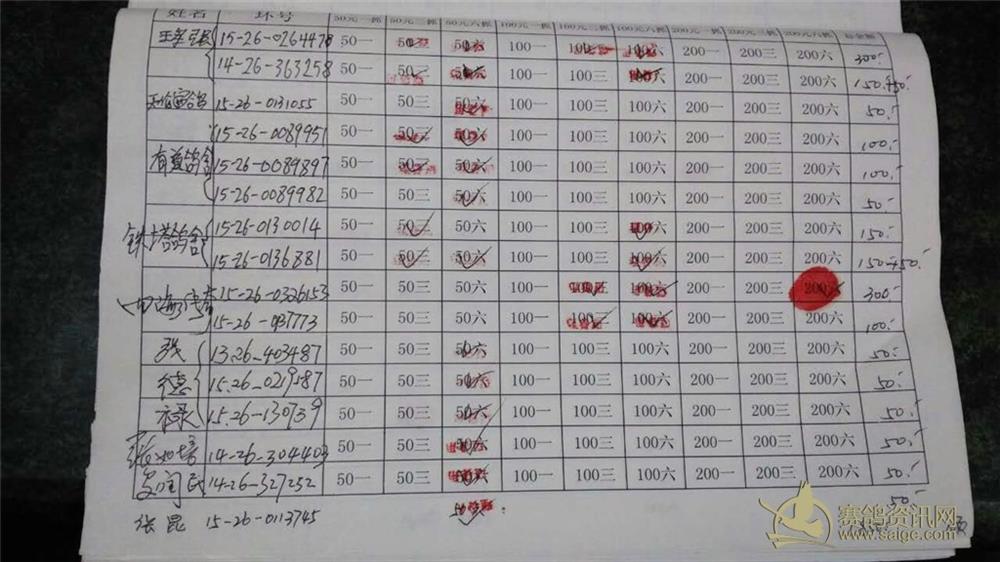 姓名 环号 50元一羽 50元三羽 50元六羽 100元一羽 100元三羽 100元六羽 200元一羽 200元三羽 200元六羽 总金额
15-26-0264478 50一 50六 100一 100三 100六 200一 200三 200六 300.-
14-26-363258 50一 50三 50六 100一 100三 100六 200一 200三 200六 150.+50.-
15-26-0131055 50一 50三 50六 100一 100三 100六 200一 200三 200六 50.-
15-26-0089951 50一 50三 50六 100一 100三 100六 200一 200三 200六 100.-
15-26-0089897 50一 50三 50六 100一 100三 100六 200一 200三 200六 100.-
15-26-0089982 50一 50三 50六 100一 100三 100六 200一 200三 200六 50.-
铁塔鸽舍 15-26-0130014 50一 50三 50六 100一 100三 100六 200一 200三 200六 150.-
15-26-0136881 50一 50三 50六 100一 100三 100六 200一 200三 200六 150+50.-
15-26-0326153 50一 50三 50六 100一 100六 200一 200三 200六 300.-
50一 50三 50六 100一 100三 100六 200一 200三 200六 100.-
张 13.26-403487 50一 50三 50六 100一 100三 100六 200一 200三 200六 50.-
德 15.26-0219587 50一 50三 50六 100一 100三 100六 200一 200三 200六 50.-
禄 15.26-130739 50一 50三 50六 100一 100三 100六 200一 200三 200六 50.-
14-26-304403 50一 50三 50六 100一 100三 100六 200一 200三 200六 50.-
14-26-327252 50一 50三 50六 100一 100三 100六 200一 200三 200六 50.-
张昆 15-26-0113745 50.-
赛鸽资讯网
www.saige.com